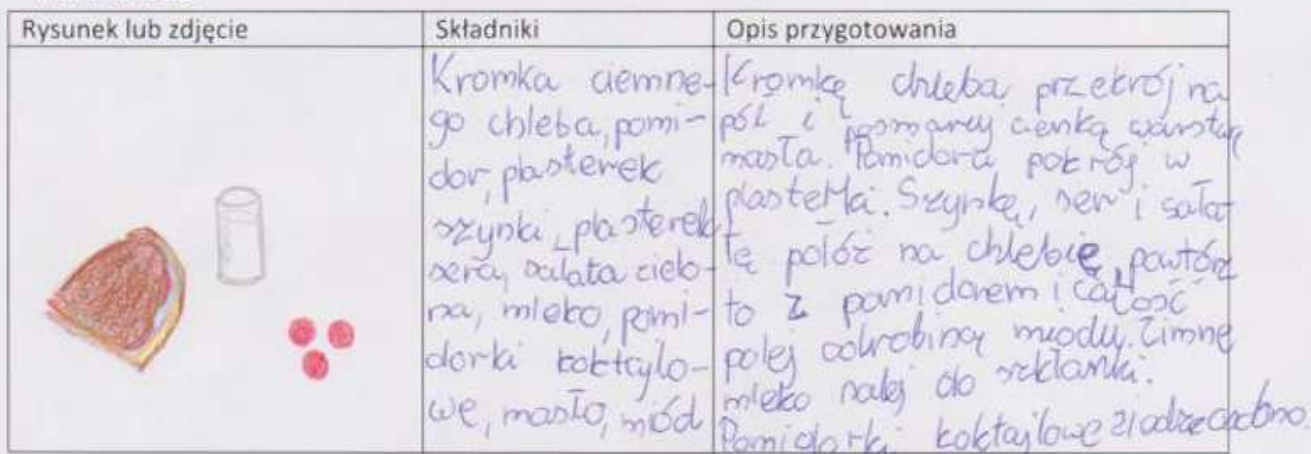 Rysunek lub zdjęcie
Składniki
Opis przygotowania
Kromka ciemne-
go chleba, pomi-
dor, plasterek
szynki, plasterek
sera, sałata zielo-
na, mleko, pomi-
dorki koktajlo-
we, masło, miód
Kromkę chleba przekrój na
pół i posmaruj cienką warstwą
masła. Pomidora pokrój w
plasterki. Szynkę, ser i sała-
tę połóż na chlebie, powtórz
to z pomidorem i całość
polej odrobiną miodu. Zimne
mleko nalej do szklanki.
Pomidorki koktajlowe zjadz osobno.